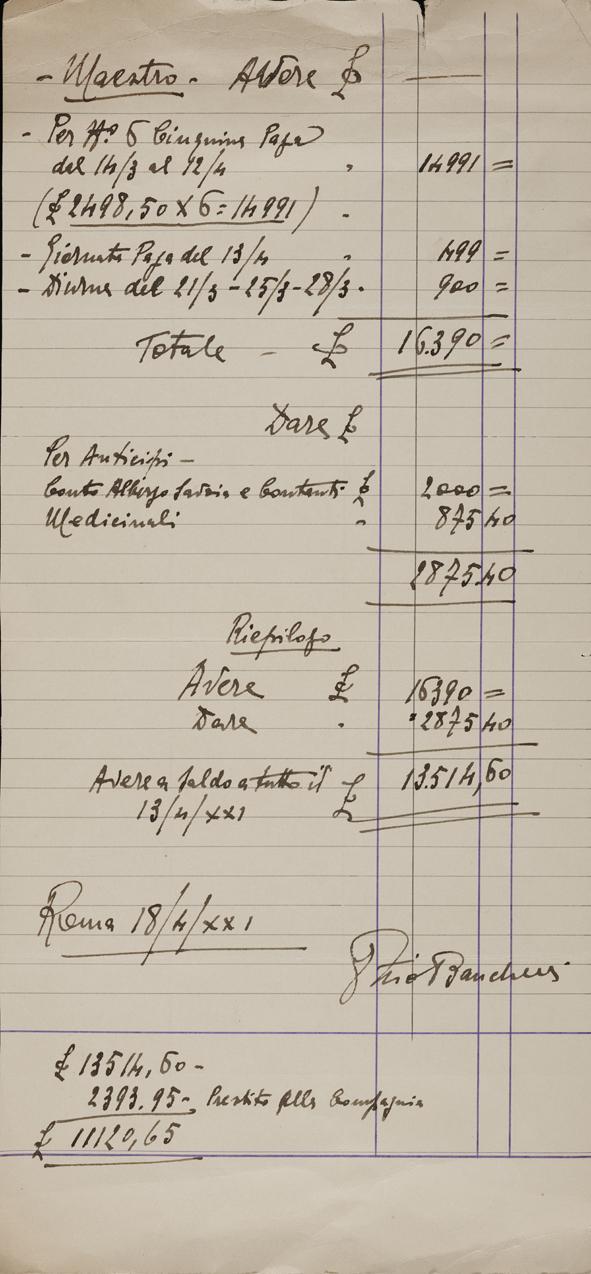 - Maestro - Avere £ —
- Per N.º 6 Cinquine Paga
dal 14/3 al 12/4 " 14991 =
(£ 2498,50 x 6 = 14991) "
- Giornata Paga del 13/4 " 499 =
- Diurna del 21/3 - 25/3 - 28/3 " 900 =
Totale - £ 16.390 =
Dare £
Per Anticipi -
Conto Albergo Savoia e Contanti £ 2000 =
Medicinali " 875 40
2875.40
Riepilogo
Avere £ 16390 =
Dare " 2875 40
Avere a saldo a tutto il £ 13.514,60
13/4/XXI
Roma 18/4/XXI
£ 13514,60 -
2393.95 - Prestito alla Compagnia
£ 11120,65